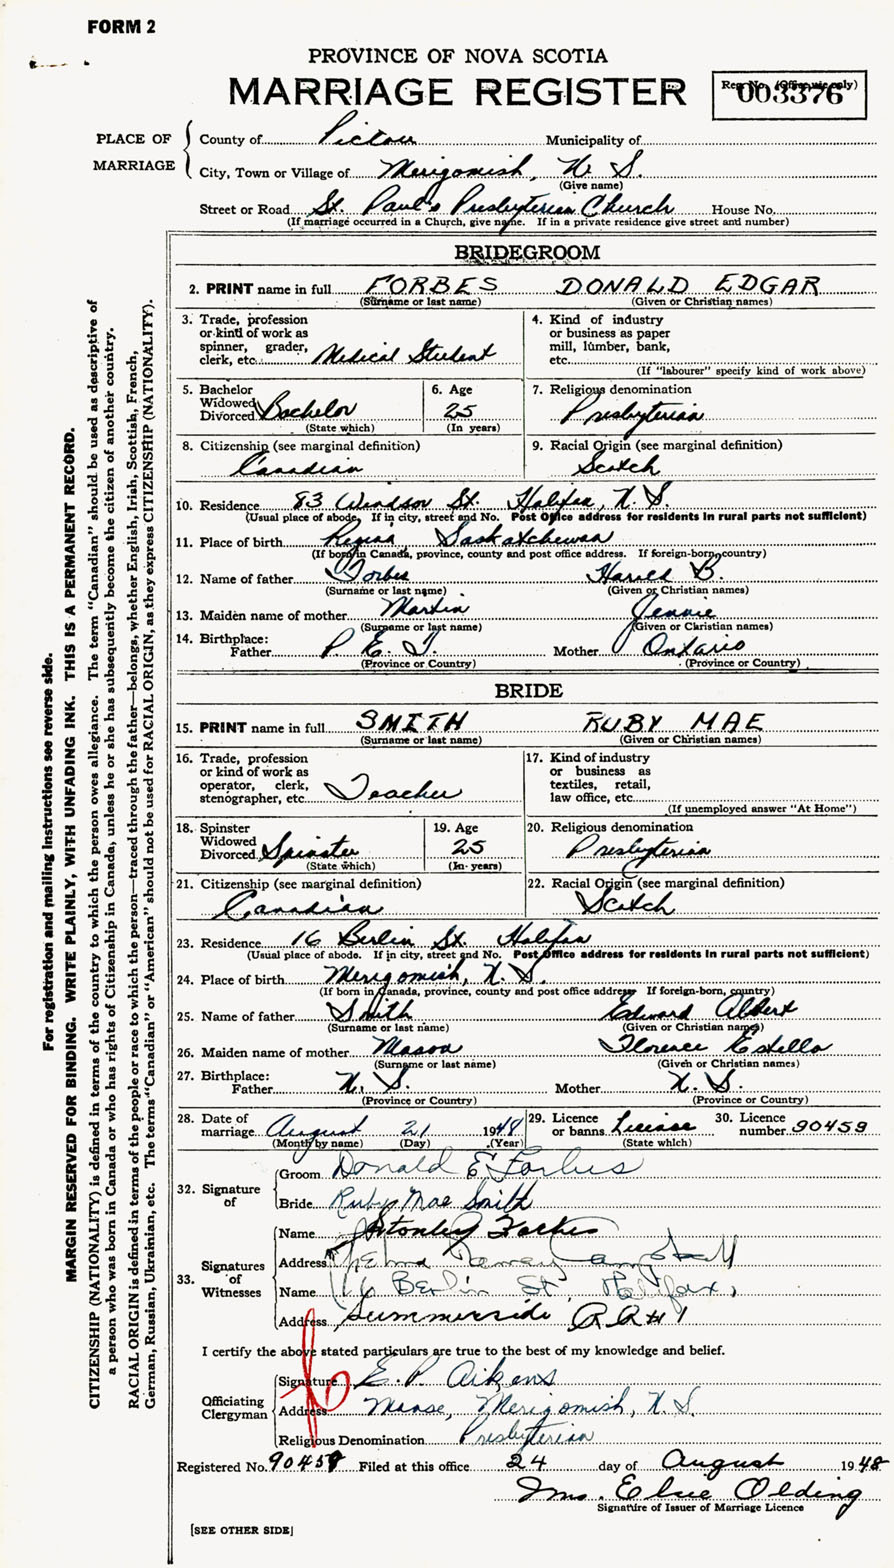 FORM 2
PROVINCE OF NOVA SCOTIA
MARRIAGE REGISTER
Reg. No. (Office use only)
003376
PLACE OF MARRIAGE
County of Pictou Municipality of
City, Town or Village of Merigomish, N. S.
(Give name)
Street or Road St. Paul's Presbyterian Church House No.
(If marriage occurred in a Church, give name. If in a private residence give street and number)
BRIDEGROOM
2. PRINT name in full FORBES DONALD EDGAR
(Surname or last name) (Given or Christian names)
3. Trade, profession or kind of work as spinner, grader, clerk, etc. Medical Student
4. Kind of industry or business as paper mill, lumber, bank, etc.
(If "labourer" specify kind of work above)
5. Bachelor Widowed Divorced Bachelor
(State which)
6. Age 25
(In years)
7. Religious denomination
Presbyterian
8. Citizenship (see marginal definition)
Canadian
9. Racial Origin (see marginal definition)
Scotch
10. Residence 83 Windsor St. Halifax, N. S.
(Usual place of abode. If in city, street and No. Post Office address for residents in rural parts not sufficient)
11. Place of birth Regina Saskatchewan
(If born in Canada, province, county and post office address. If foreign-born, country)
12. Name of father Forbes Harold B.
(Surname or last name) (Given or Christian names)
13. Maiden name of mother Martin Jennie
(Surname or last name) (Given or Christian names)
14. Birthplace:
Father P. E. I. Mother Ontario
(Province or Country) (Province or Country)
BRIDE
15. PRINT name in full SMITH RUBY MAE
(Surname or last name) (Given or Christian names)
16. Trade, profession or kind of work as operator, clerk, stenographer, etc. Teacher
17. Kind of industry or business as textiles, retail, law office, etc.
(If unemployed answer "At Home")
18. Spinster Widowed Divorced Spinster
(State which)
19. Age 25
(In years)
20. Religious denomination
Presbyterian
21. Citizenship (see marginal definition)
Canadian
22. Racial Origin (see marginal definition)
Scotch
23. Residence 16 Berlin St. Halifax
(Usual place of abode. If in city, street and No. Post Office address for residents in rural parts not sufficient)
24. Place of birth Merigomish, N. S.
(If born in Canada, province, county and post office address If foreign-born, country)
25. Name of father Smith Edward Albert
(Surname or last name) (Given or Christian names)
26. Maiden name of mother Mason Florence Estella
(Surname or last name) (Given or Christian names)
27. Birthplace:
Father N. S. Mother N. S.
(Province or Country) (Province or Country)
28. Date of marriage August 21 1948
(Month by name) (Day) (Year)
29. Licence or banns License
(State which)
30. Licence number 90459
32. Signature of
Groom Donald E Forbes
Bride Ruby Mae Smith
33. Signatures of Witnesses
Name Stanley Forbes
Address Thelma Campbell
Name 16 Berlin St. Halifax,
Address Summerside R R # 1
I certify the above stated particulars are true to the best of my knowledge and belief.
Officiating Clergyman
Signature E. P. Aikens
Address Manse, Merigomish, N. S.
Religious Denomination Presbyterian
Registered No. 90459 Filed at this office 24 day of August 1948
Mrs. Elsie Olding
Signature of Issuer of Marriage Licence
[SEE OTHER SIDE]
For registration and mailing instructions see reverse side.
MARGIN RESERVED FOR BINDING. WRITE PLAINLY, WITH UNFADING INK. THIS IS A PERMANENT RECORD.
CITIZENSHIP (NATIONALITY) is defined in terms of the country to which the person owes allegiance. The term "Canadian" should be used as descriptive of
a person who was born in Canada or who has rights of Citizenship in Canada, unless he or she has subsequently become the citizen of another country.
RACIAL ORIGIN is defined in terms of the people or race to which the person—traced through the father—belongs, whether English, Irish, Scottish, French,
German, Russian, Ukrainian, etc. The terms "Canadian" or "American" should not be used for RACIAL ORIGIN, as they express CITIZENSHIP (NATIONALITY).